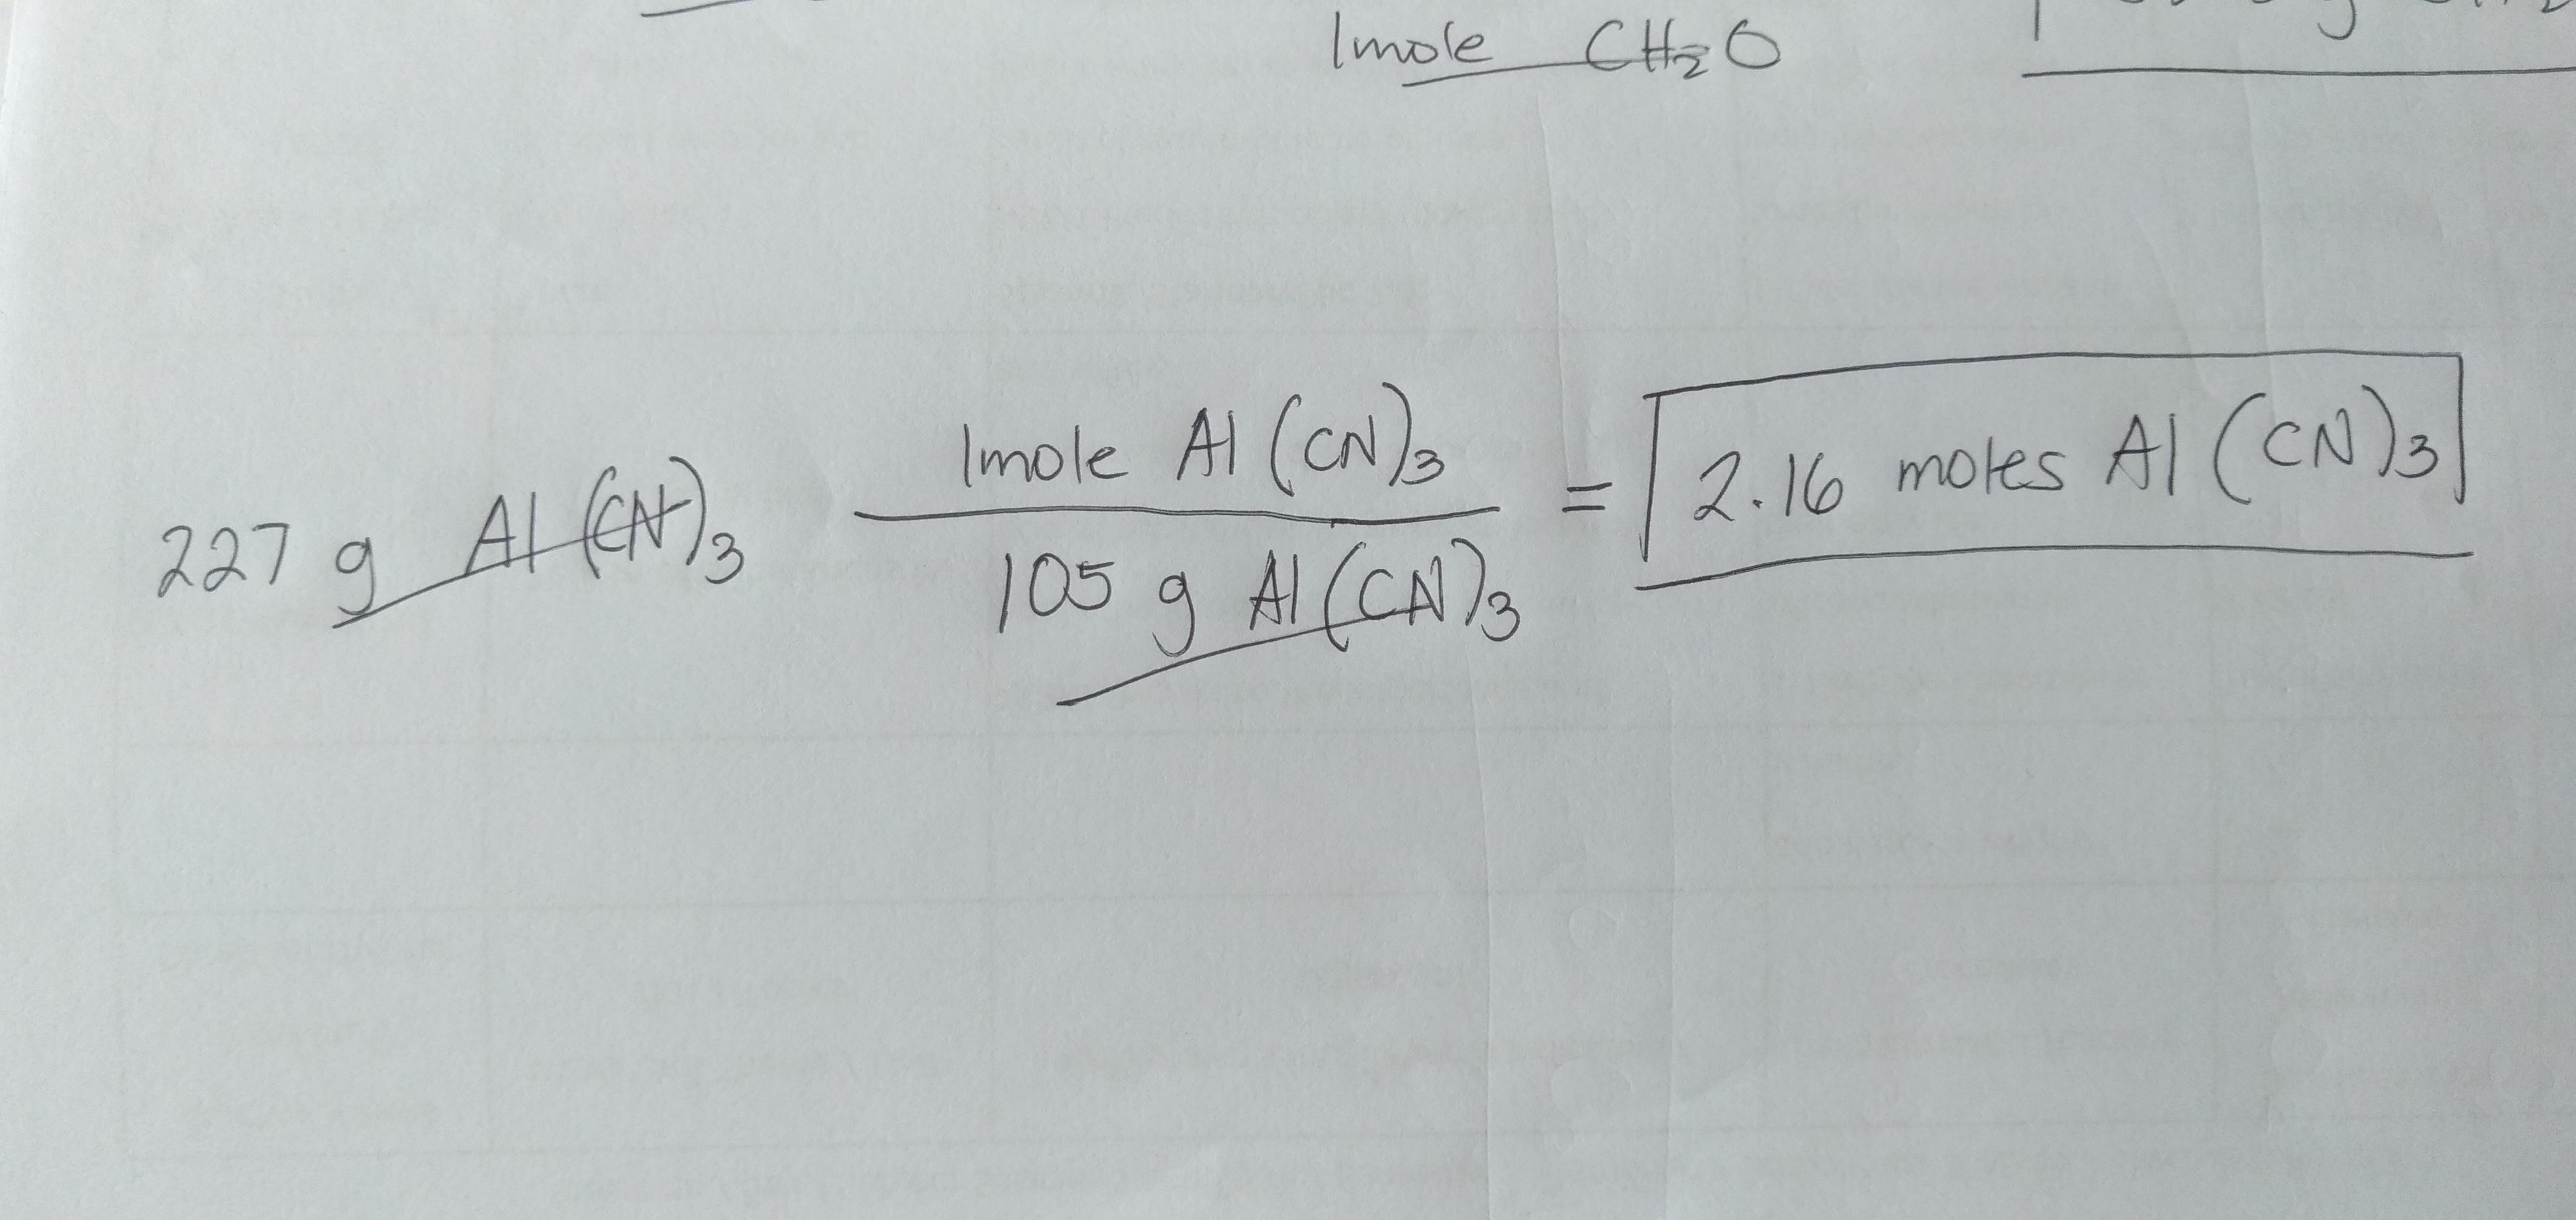 1mole CH₂O
227 g Al(CN)₃ 1mole Al(CN)₃ / 105 g Al(CN)₃ = 2.16 moles Al(CN)₃